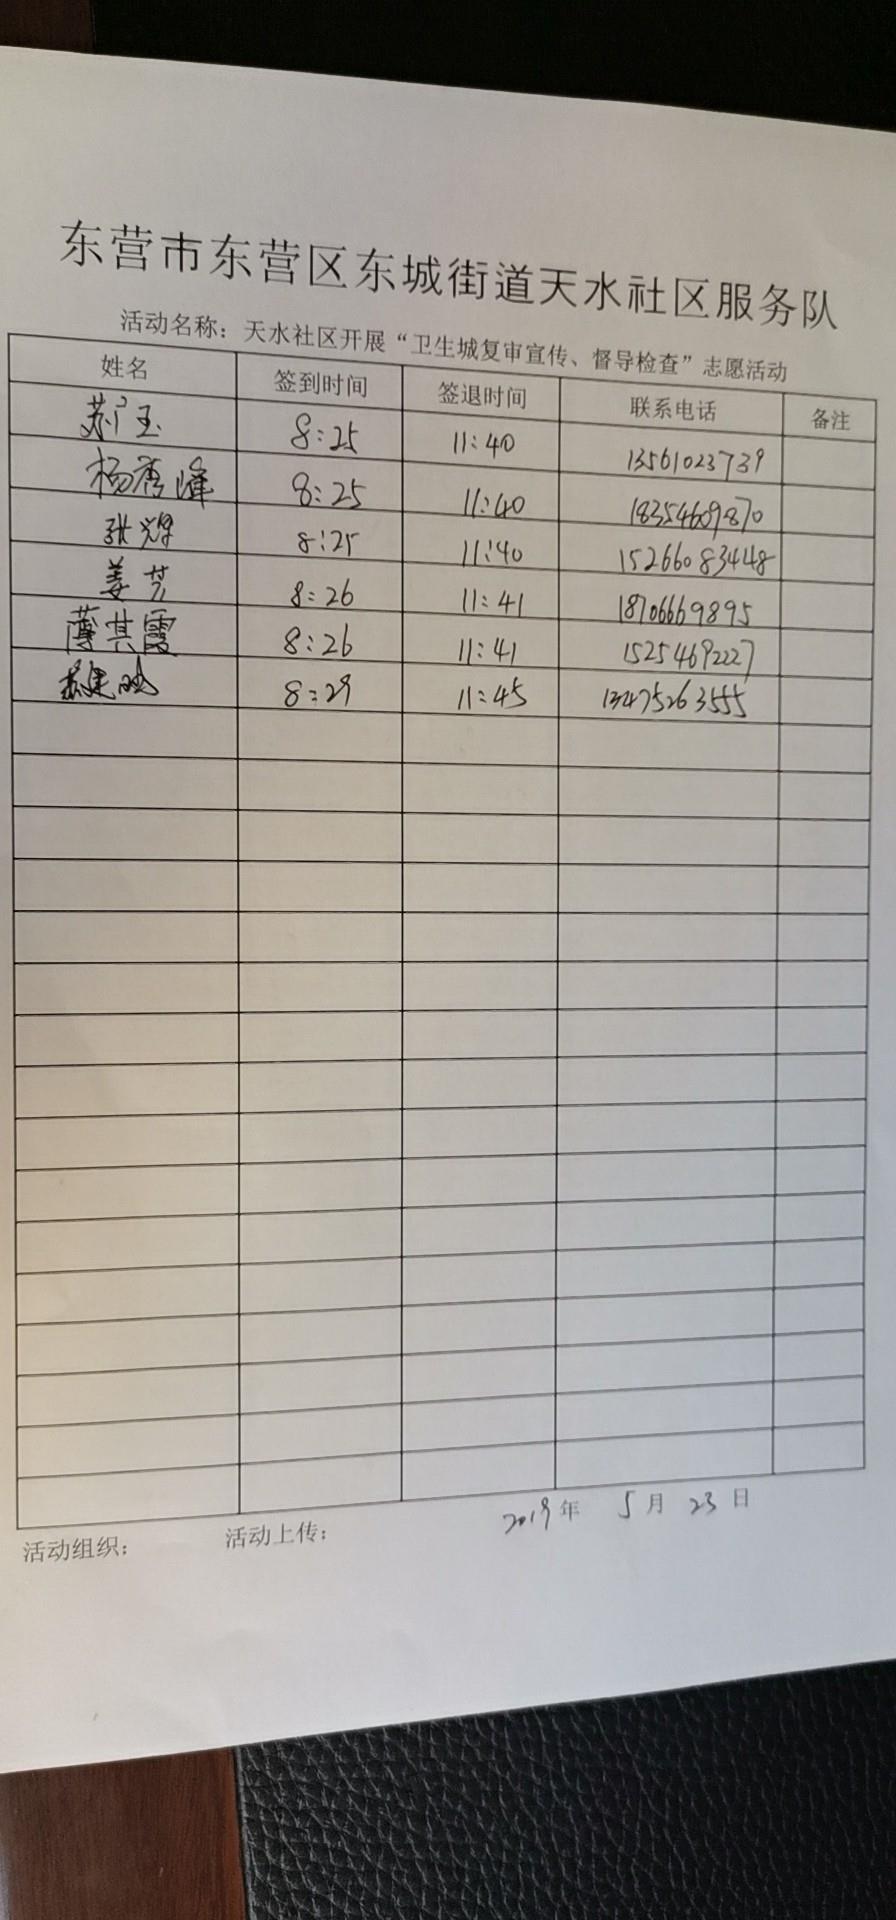 东营市东营区东城街道天水社区服务队
活动名称：天水社区开展“卫生城复审宣传、督导检查”志愿活动
姓名 签到时间 签退时间 联系电话 备注
8:25 11:40 13561023739
杨秀峰 8:25 11:40 18354609870
张辉 8:25 11:40 15266083448
姜芳 8:26 11:41 18706669895
薄其霞 8:26 11:41 15254692227
8:29 11:45 13475263555
2019年 5月 23日
活动组织： 活动上传：